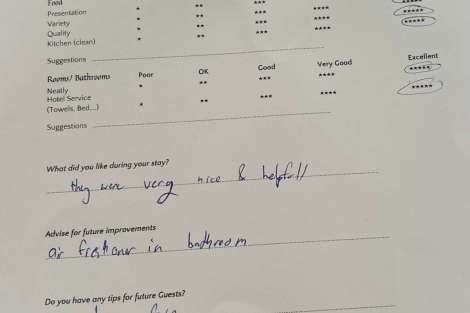 Food
Presentation * ** *** **** *****
Variety * ** *** **** *****
Quality * ** *** ****
Kitchen (clean) * ** *** ****
Suggestions
Rooms/ Bathrooms Poor OK Good Very Good Excellent
Neatly * ** *** **** *****
Hotel Service
(Towels, Bed,...) * ** *** **** *****
Suggestions
What did you like during your stay?
they were very nice & helpfull
Advise for future improvements
air freshener in bathroom
Do you have any tips for future Guests?